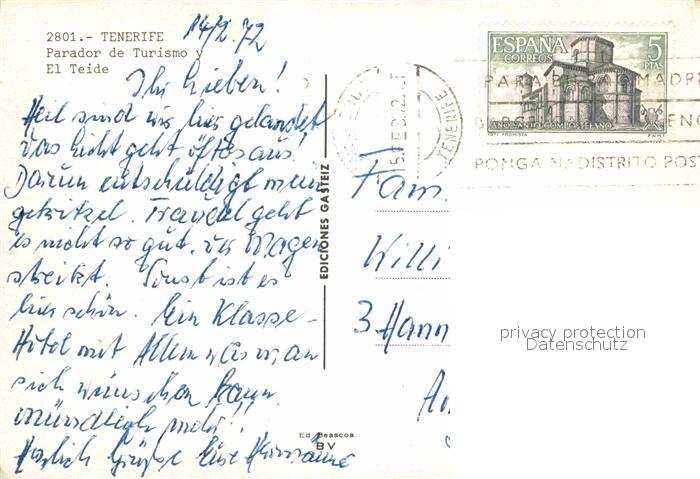 2801.- TENERIFE
Parador de Turismo y
El Teide
14/2.72
Ihr Lieben!
Heil sind wir hier gelandet
Das Licht geht öfters aus!
Darum entschuldigt mein
gekritzel. Traudel geht
es nicht so gut. der Magen
streikt. Sonst ist es
hier schön. Ein Klasse-
Hotel mit Allem was man
sich wünschen kann
mündlich mehr!!
Herzlich Grüße Eure
EDICIONES GASTEIZ
Ed. Beascoa
BV
ESPAÑA
CORREOS
5
PTAS
AÑO SANTO COMPOSTELANO
F.N.M.T.
TENERIFE
PARA MADR
PONGA Nº DISTRITO POST
Fam.
Willi
3 Hann
privacy protection
Datenschutz